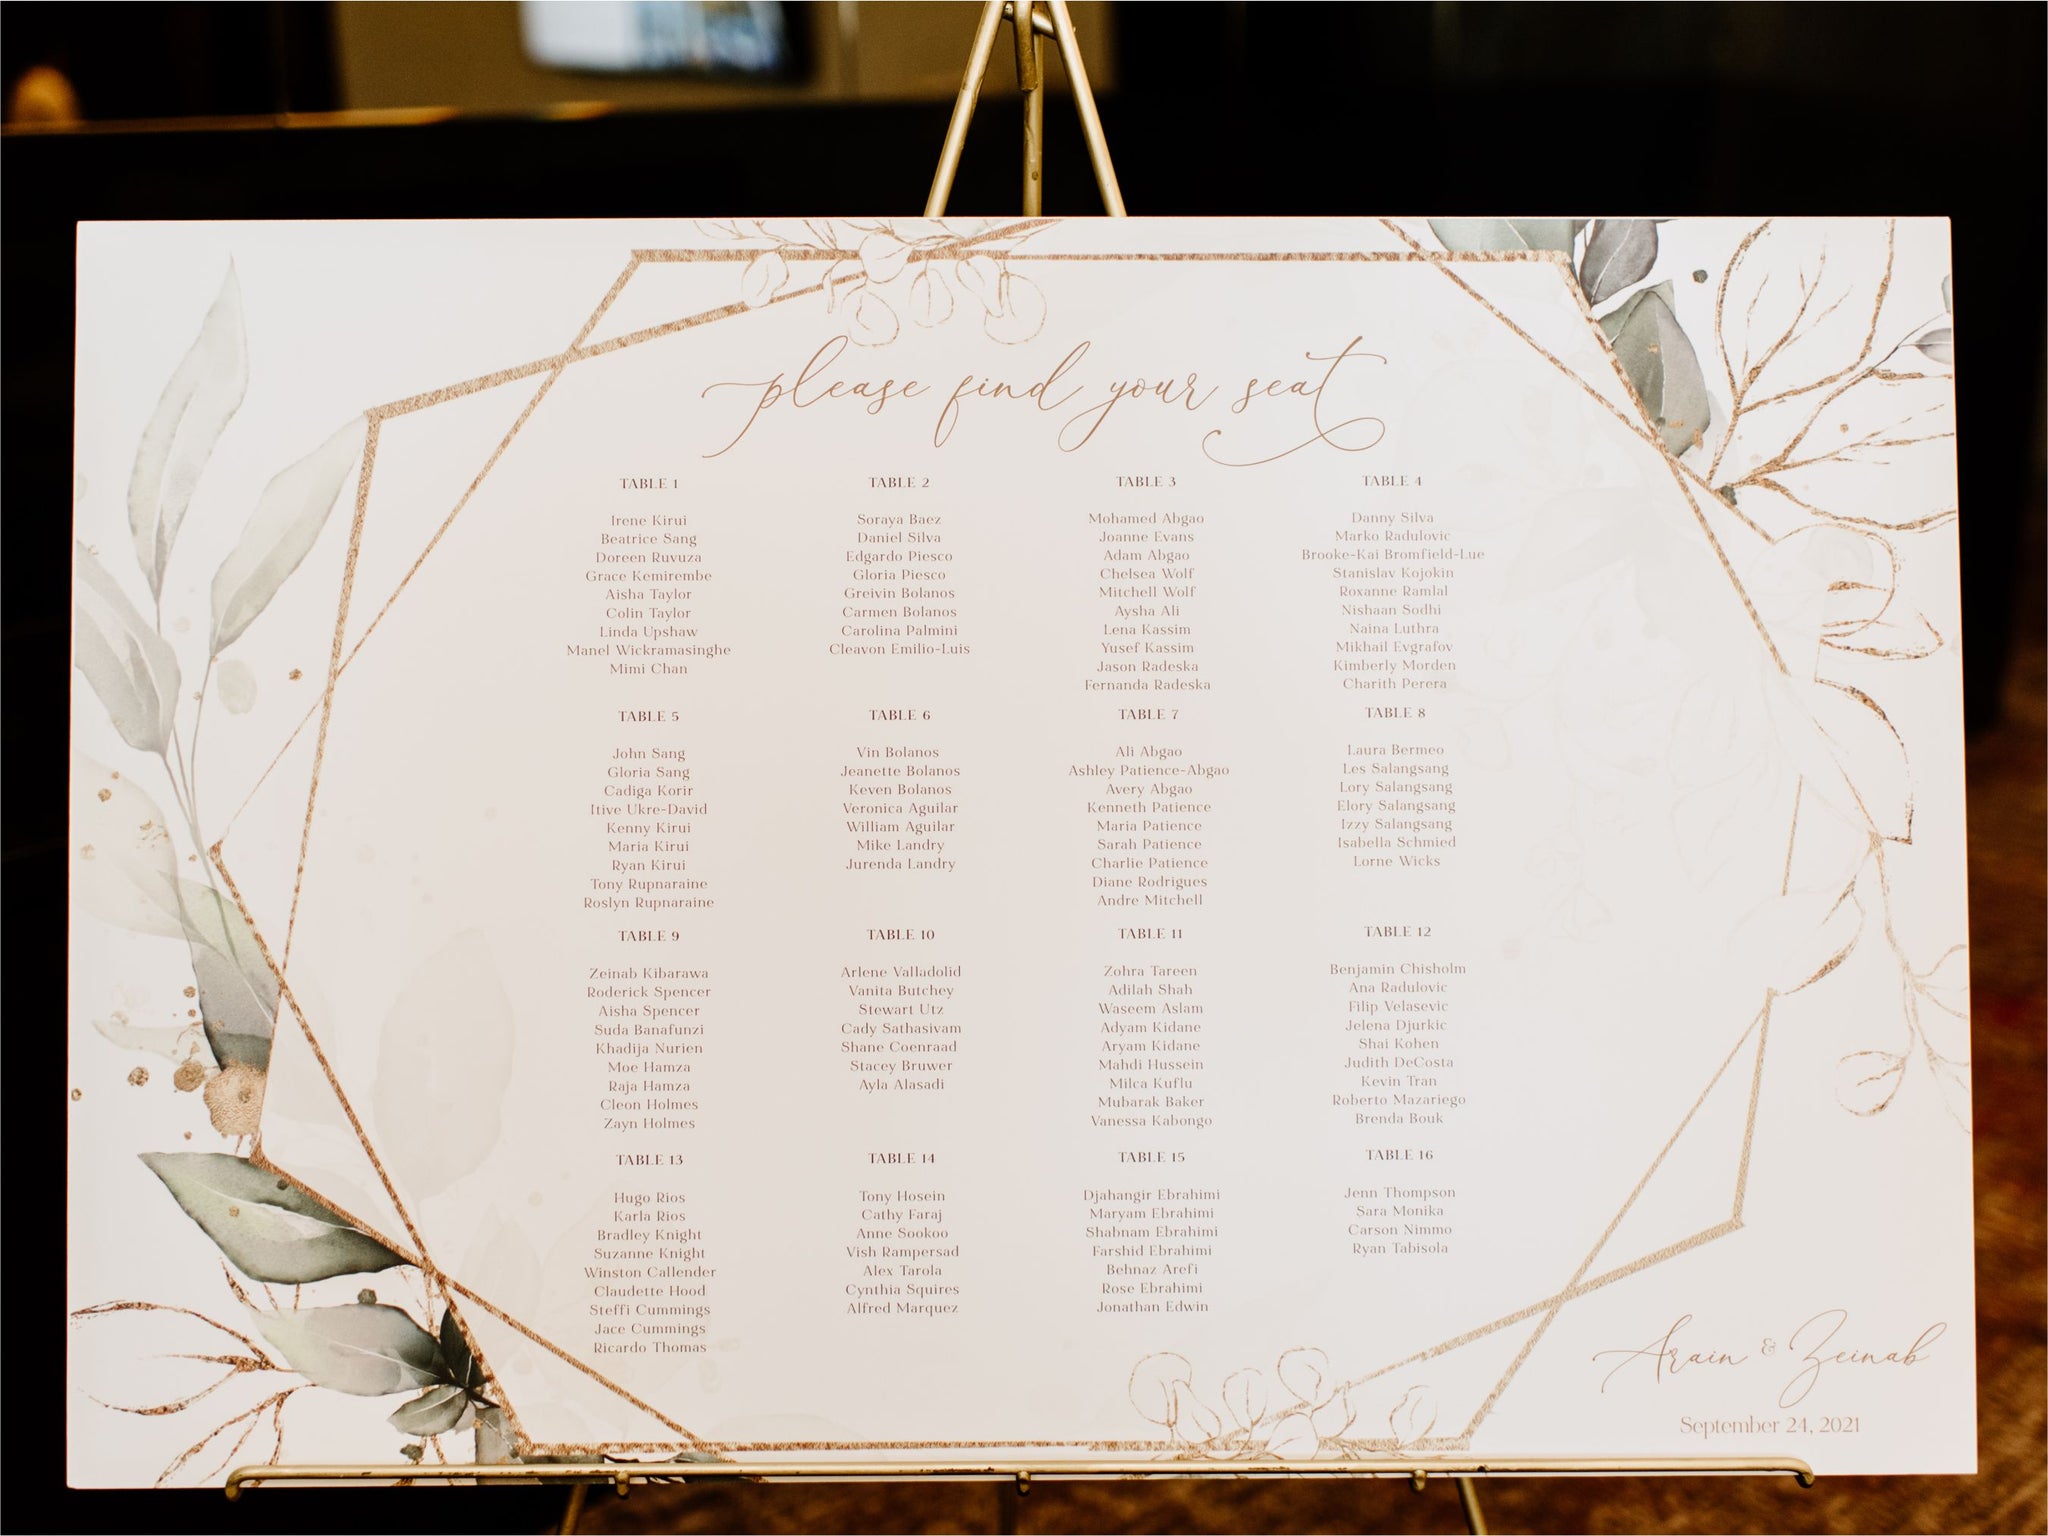 please find your seat
TABLE 1
Irene Kirui
Beatrice Sang
Doreen Ruvuza
Grace Kemirembe
Aisha Taylor
Colin Taylor
Linda Upshaw
Manel Wickramasinghe
Mimi Chan
TABLE 2
Soraya Baez
Daniel Silva
Edgardo Piesco
Gloria Piesco
Greivin Bolanos
Carmen Bolanos
Carolina Palmini
Cleavon Emilio-Luis
TABLE 3
Mohamed Abgao
Joanne Evans
Adam Abgao
Chelsea Wolf
Mitchell Wolf
Aysha Ali
Lena Kassim
Yusef Kassim
Jason Radeska
Fernanda Radeska
TABLE 4
Danny Silva
Marko Radulovic
Brooke-Kai Bromfield-Lue
Stanislav Kojokin
Roxanne Ramlal
Nishaan Sodhi
Naina Luthra
Mikhail Evgrafov
Kimberly Morden
Charith Perera
TABLE 5
John Sang
Gloria Sang
Cadiga Korir
Itive Ukre-David
Kenny Kirui
Maria Kirui
Ryan Kirui
Tony Rupnaraine
Roslyn Rupnaraine
TABLE 6
Vin Bolanos
Jeanette Bolanos
Keven Bolanos
Veronica Aguilar
William Aguilar
Mike Landry
Jurenda Landry
TABLE 7
Ali Abgao
Ashley Patience-Abgao
Avery Abgao
Kenneth Patience
Maria Patience
Sarah Patience
Charlie Patience
Diane Rodrigues
Andre Mitchell
TABLE 8
Laura Bermeo
Les Salangsang
Lory Salangsang
Elory Salangsang
Izzy Salangsang
Isabella Schmied
Lorne Wicks
TABLE 9
Zeinab Kibarawa
Roderick Spencer
Aisha Spencer
Suda Banafunzi
Khadija Nurien
Moe Hamza
Raja Hamza
Cleon Holmes
Zayn Holmes
TABLE 10
Arlene Valladolid
Vanita Butchey
Stewart Utz
Cady Sathasivam
Shane Coenraad
Stacey Bruwer
Ayla Alasadi
TABLE 11
Zohra Tareen
Adilah Shah
Waseem Aslam
Adyam Kidane
Aryam Kidane
Mahdi Hussein
Milca Kuflu
Mubarak Baker
Vanessa Kabongo
TABLE 12
Benjamin Chisholm
Ana Radulovic
Filip Velasevic
Jelena Djurkic
Shai Kohen
Judith DeCosta
Kevin Tran
Roberto Mazariego
Brenda Bouk
TABLE 13
Hugo Rios
Karla Rios
Bradley Knight
Suzanne Knight
Winston Callender
Claudette Hood
Steffi Cummings
Jace Cummings
Ricardo Thomas
TABLE 14
Tony Hosein
Cathy Faraj
Anne Sookoo
Vish Rampersad
Alex Tarola
Cynthia Squires
Alfred Marquez
TABLE 15
Djahangir Ebrahimi
Maryam Ebrahimi
Shabnam Ebrahimi
Farshid Ebrahimi
Behnaz Arefi
Rose Ebrahimi
Jonathan Edwin
TABLE 16
Jenn Thompson
Sara Monika
Carson Nimmo
Ryan Tabisola
Arain & Zeinab
September 24, 2021